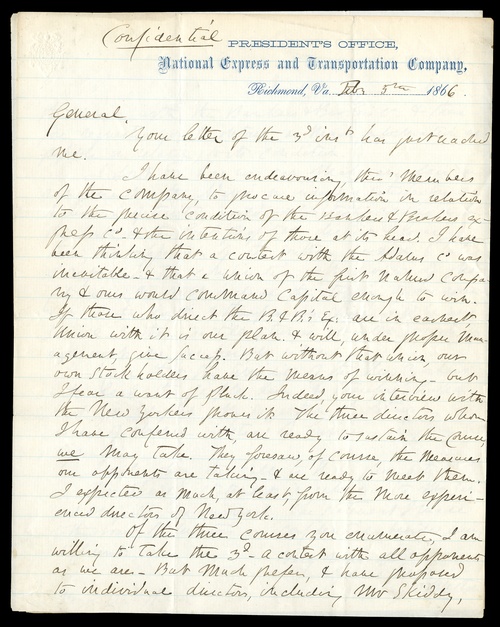 Confidential
PRESIDENT'S OFFICE,
National Express and Transportation Company,
Richmond, Va. Feb. 5th 1866.
General,
Your letter of the 3d inst has just reached
me.
I have been endeavouring, thro' members
of the Company, to procure information in relation
to the precise condition of the Bankers & Brokers ex-
press Co. & the intentions of those at its head. I have
been thinking that a contest with the Adams Co was
inevitable - & that a union of the first named Compa-
ny & ours would command Capital enough to win.
If those who direct the B. & B.'s Ex: are in earnest
Union with it is our plan, & will, under proper man-
agement, give success. But without that union, our
own Stockholders have the means of winning - but
I fear a want of pluck. Indeed, your interview with
the New Yorkers proves it. The three directors whom
I have conferred with, are ready to sustain the course,
we may take. They foresaw, of course, the measures
our opponents are taking - & are ready to meet them.
I expected as much, at least, from the more experi-
enced directors of New York.
Of the three courses you enumerate, I am
willing to take the 3d - a contest with all opponents
as we are - But much prefer, & have proposed
to individual directors, including Mr Skiddy,